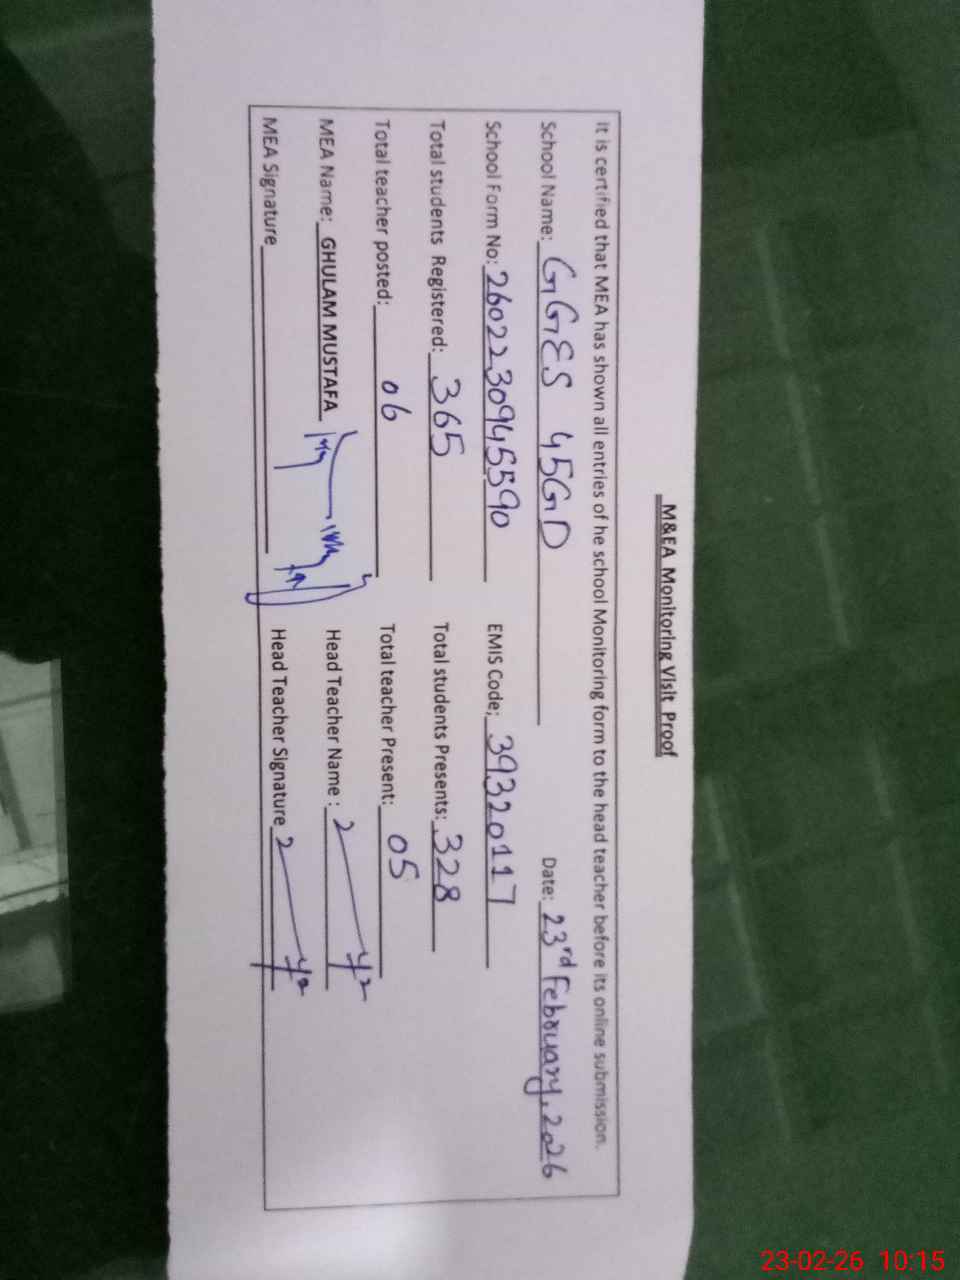 M&EA Monitoring Visit Proof
It is certified that MEA has shown all entries of he school Monitoring form to the head teacher before its online submission.
School Name: GGES 45GD Date: 23rd February, 2026
School Form No: 26022309455590 EMIS Code; 39320117
Total students Registered: 365 Total students Presents: 328
Total teacher posted: 06 Total teacher Present: 05
MEA Name: GHULAM MUSTAFA Head Teacher Name :
MEA Signature Head Teacher Signature
23-02-26 10:15